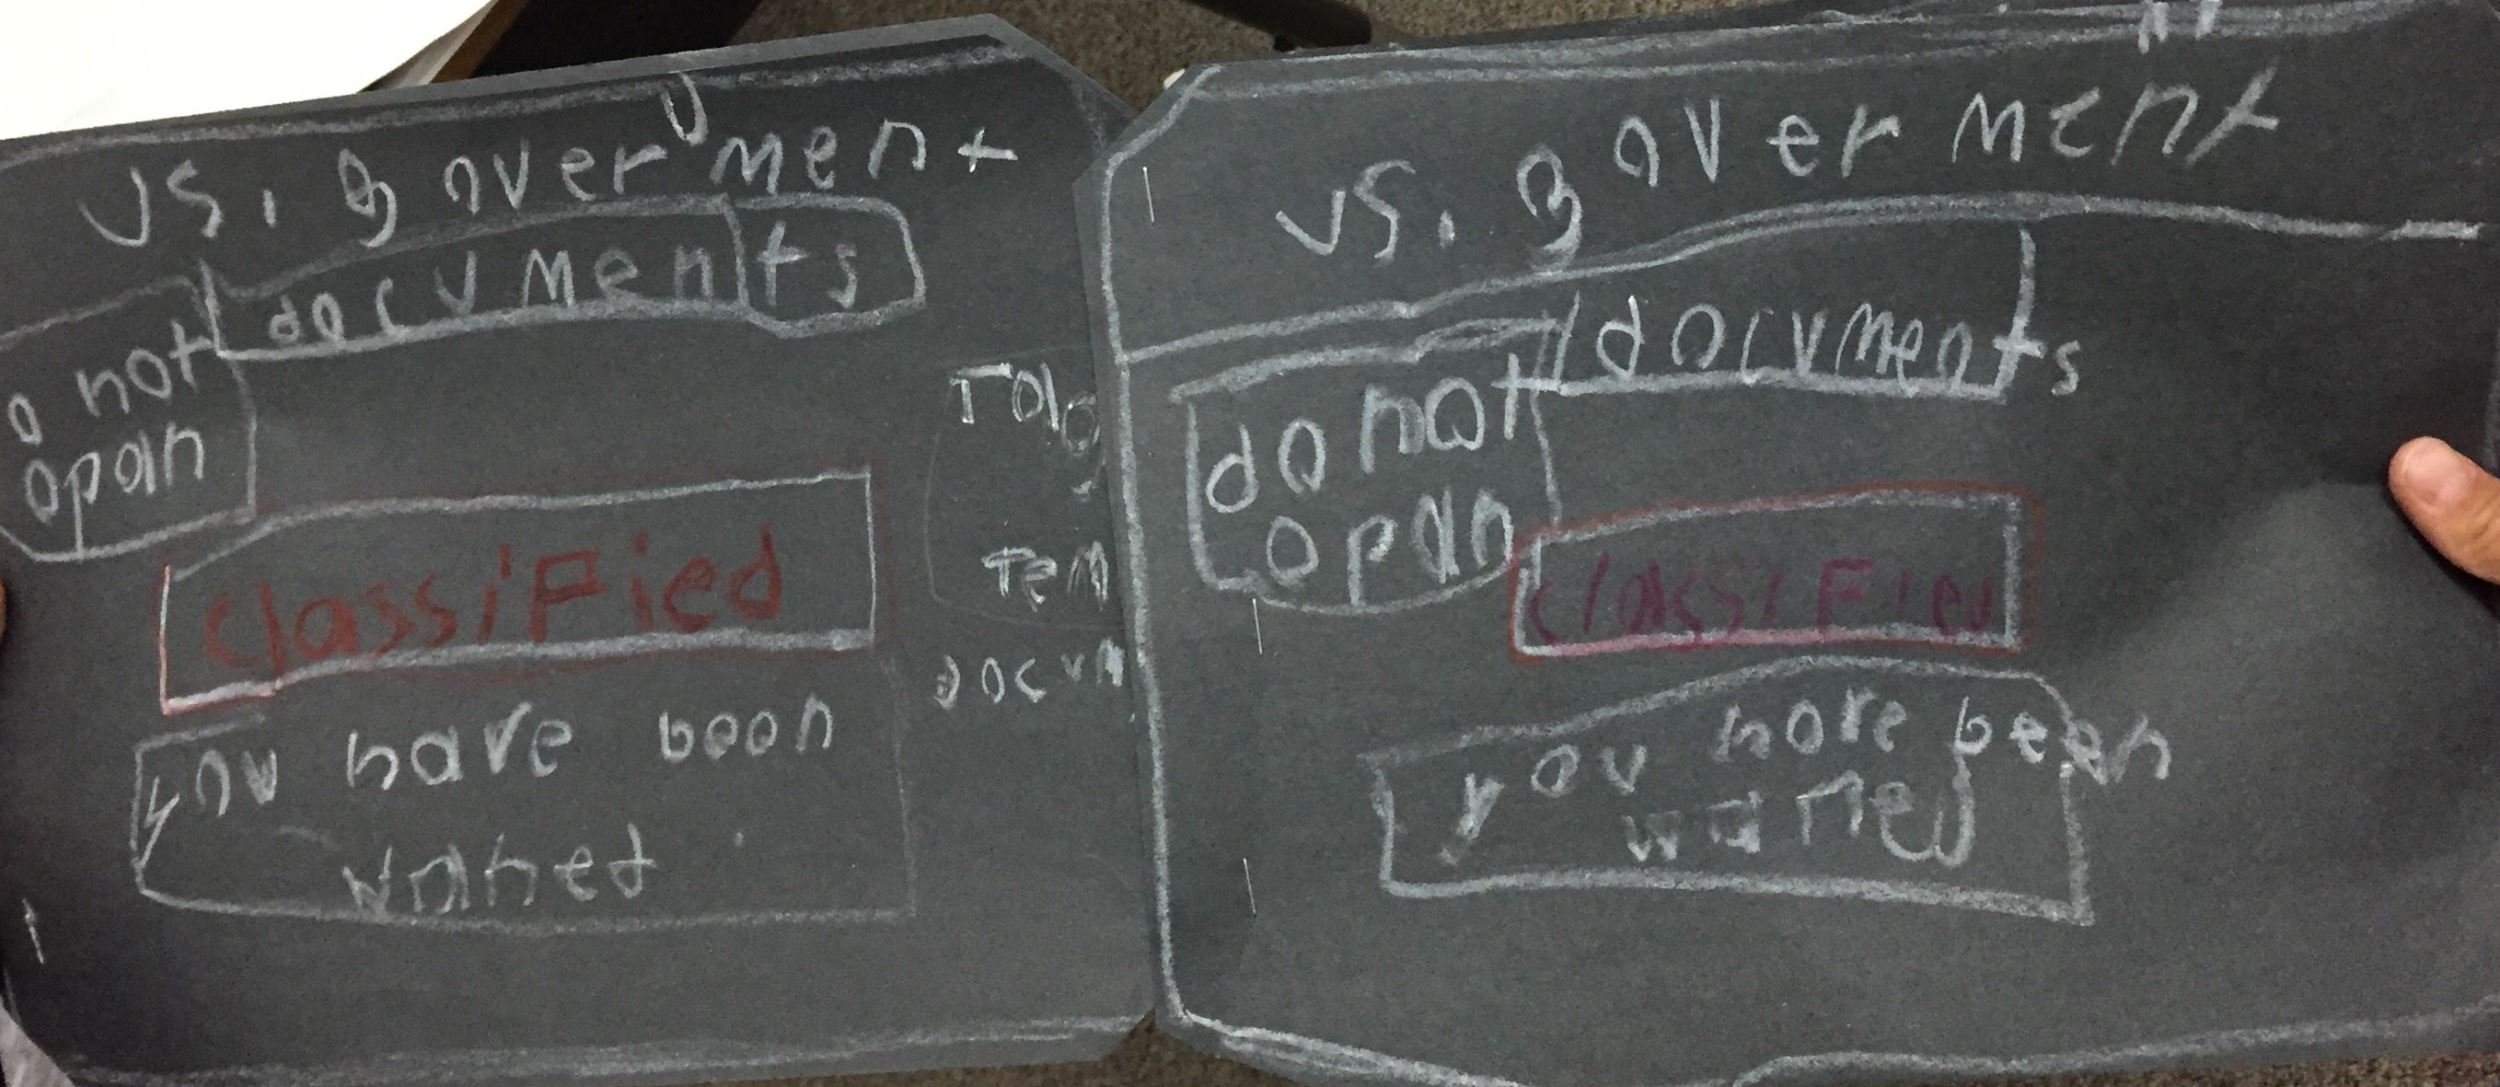 US. govermen+
documents
o not
opan
classiFied
you have boon
wahed
Tem
docum
US. goverment
documents
do not
opan
classiFied
you have been
warned